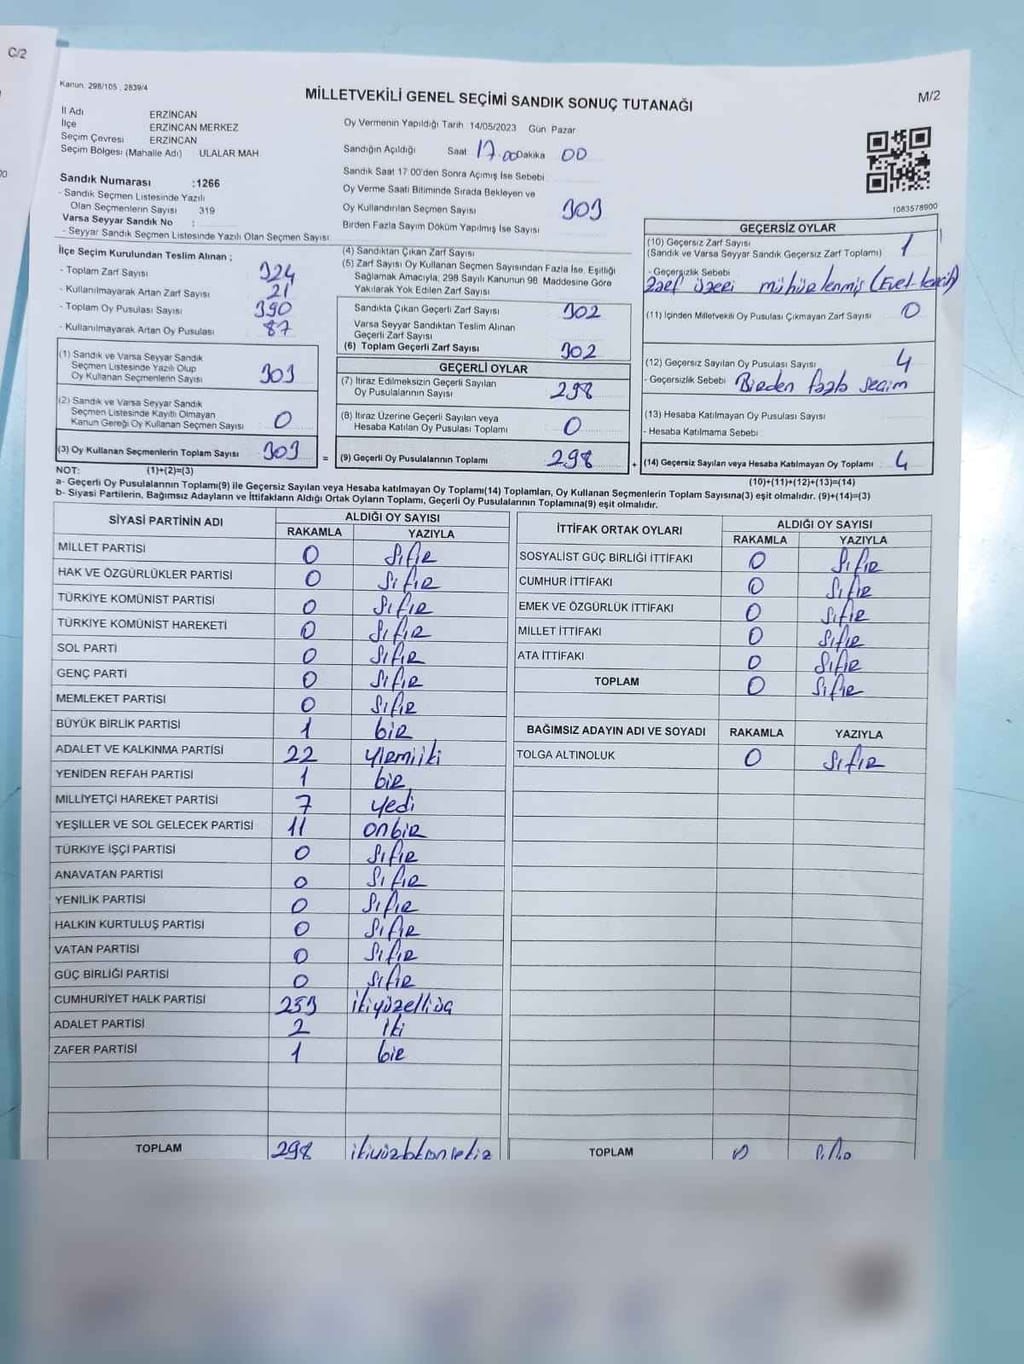 C/2
Kanun. 298/105 , 2839/4
MİLLETVEKİLİ GENEL SEÇİMİ SANDIK SONUÇ TUTANAĞI
M/2
İl Adı ERZİNCAN
İlçe ERZİNCAN MERKEZ
Seçim Çevresi ERZİNCAN
Seçim Bölgesi (Mahalle Adı) ULALAR MAH
Sandık Numarası :1266
- Sandık Seçmen Listesinde Yazılı
Olan Seçmenlerin Sayısı 319
Varsa Seyyar Sandık No :
- Seyyar Sandık Seçmen Listesinde Yazılı Olan Seçmen Sayısı:
Oy Vermenin Yapıldığı Tarih 14/05/2023 Gün Pazar
Sandığın Açıldığı Saat 17.00 Dakika 00
Sandık Saat 17.00'den Sonra Açımış İse Sebebi
Oy Verme Saati Bitiminde Sırada Bekleyen ve
Oy Kullandırılan Seçmen Sayısı 303
Birden Fazla Sayım Döküm Yapılmış İse Sayısı
1083578900
İlçe Seçim Kurulundan Teslim Alınan ;
- Toplam Zarf Sayısı 324
- Kullanılmayarak Artan Zarf Sayısı 21
- Toplam Oy Pusulası Sayısı 390
- Kullanılmayarak Artan Oy Pusulası 87
(1) Sandık ve Varsa Seyyar Sandık
Seçmen Listesinde Yazılı Olup
Oy Kullanan Seçmenlerin Sayısı 303
(2) Sandık ve Varsa Seyyar Sandık
Seçmen Listesinde Kayıtlı Olmayan
Kanun Gereği Oy Kullanan Seçmen Sayısı 0
(3) Oy Kullanan Seçmenlerin Toplam Sayısı 303 =
(4) Sandıktan Çıkan Zarf Sayısı
(5) Zarf Sayısı Oy Kullanan Seçmen Sayısından Fazla İse, Eşitliği
Sağlamak Amacıyla, 298 Sayılı Kanunun 98. Maddesine Göre
Yakılarak Yok Edilen Zarf Sayısı
Sandıkta Çıkan Geçerli Zarf Sayısı 302
Varsa Seyyar Sandıktan Teslim Alınan
Geçerli Zarf Sayısı
(6) Toplam Geçerli Zarf Sayısı 302
GEÇERLİ OYLAR
(7) İtiraz Edilmeksizin Geçerli Sayılan
Oy Pusulalarının Sayısı 298
(8) İtiraz Üzerine Geçerli Sayılan veya
Hesaba Katılan Oy Pusulası Toplamı 0
(9) Geçerli Oy Pusulalarının Toplamı 298 +
GEÇERSİZ OYLAR
(10) Geçersiz Zarf Sayısı 1
(Sandık ve Varsa Seyyar Sandık Geçersiz Zarf Toplamı)
- Geçersizlik Sebebi
zarf üzeri mühürlenmiş (Evet-tercih)
(11) İçinden Milletvekili Oy Pusulası Çıkmayan Zarf Sayısı 0
(12) Geçersiz Sayılan Oy Pusulası Sayısı 4
- Geçersizlik Sebebi Birden fazla seçim
(13) Hesaba Katılmayan Oy Pusulası Sayısı
- Hesaba Katılmama Sebebi
(14) Geçersiz Sayılan veya Hesaba Katılmayan Oy Toplamı 4
NOT: (1)+(2)=(3)
(10)+(11)+(12)+(13)=(14)
a- Geçerli Oy Pusulalarının Toplamı(9) ile Geçersiz Sayılan veya Hesaba Katılmayan Oy Toplamı(14) Toplamları, Oy Kullanan Seçmenlerin Toplam Sayısına(3) eşit olmalıdır. (9)+(14)=(3)
b- Siyasi Partilerin, Bağımsız Adayların ve İttifakların Aldığı Ortak Oyların Toplamı, Geçerli Oy Pusulalarının Toplamına(9) eşit olmalıdır.
SİYASİ PARTİNİN ADI ALDIĞI OY SAYISI
RAKAMLA YAZIYLA
MİLLET PARTİSİ 0 Sıfır
HAK VE ÖZGÜRLÜKLER PARTİSİ 0 Sıfır
TÜRKİYE KOMÜNİST PARTİSİ 0 Sıfır
TÜRKİYE KOMÜNİST HAREKETİ 0 Sıfır
SOL PARTİ 0 Sıfır
GENÇ PARTİ 0 Sıfır
MEMLEKET PARTİSİ 0 Sıfır
BÜYÜK BİRLİK PARTİSİ 1 bir
ADALET VE KALKINMA PARTİSİ 22 yirmiiki
YENİDEN REFAH PARTİSİ 1 bir
MİLLİYETÇİ HAREKET PARTİSİ 7 yedi
YEŞİLLER VE SOL GELECEK PARTİSİ 11 onbir
TÜRKİYE İŞÇİ PARTİSİ 0 Sıfır
ANAVATAN PARTİSİ 0 Sıfır
YENİLİK PARTİSİ 0 Sıfır
HALKIN KURTULUŞ PARTİSİ 0 Sıfır
VATAN PARTİSİ 0 Sıfır
GÜÇ BİRLİĞİ PARTİSİ 0 Sıfır
CUMHURİYET HALK PARTİSİ 253 ikiyüzelliüç
ADALET PARTİSİ 2 iki
ZAFER PARTİSİ 1 bir
TOPLAM 298 ikiyüzdoksansekiz
İTTİFAK ORTAK OYLARI ALDIĞI OY SAYISI
RAKAMLA YAZIYLA
SOSYALİST GÜÇ BİRLİĞİ İTTİFAKI 0 Sıfır
CUMHUR İTTİFAKI 0 Sıfır
EMEK VE ÖZGÜRLÜK İTTİFAKI 0 Sıfır
MİLLET İTTİFAKI 0 Sıfır
ATA İTTİFAKI 0 Sıfır
TOPLAM 0 Sıfır
BAĞIMSIZ ADAYIN ADI VE SOYADI RAKAMLA YAZIYLA
TOLGA ALTINOLUK 0 Sıfır
TOPLAM 0 Sıfır